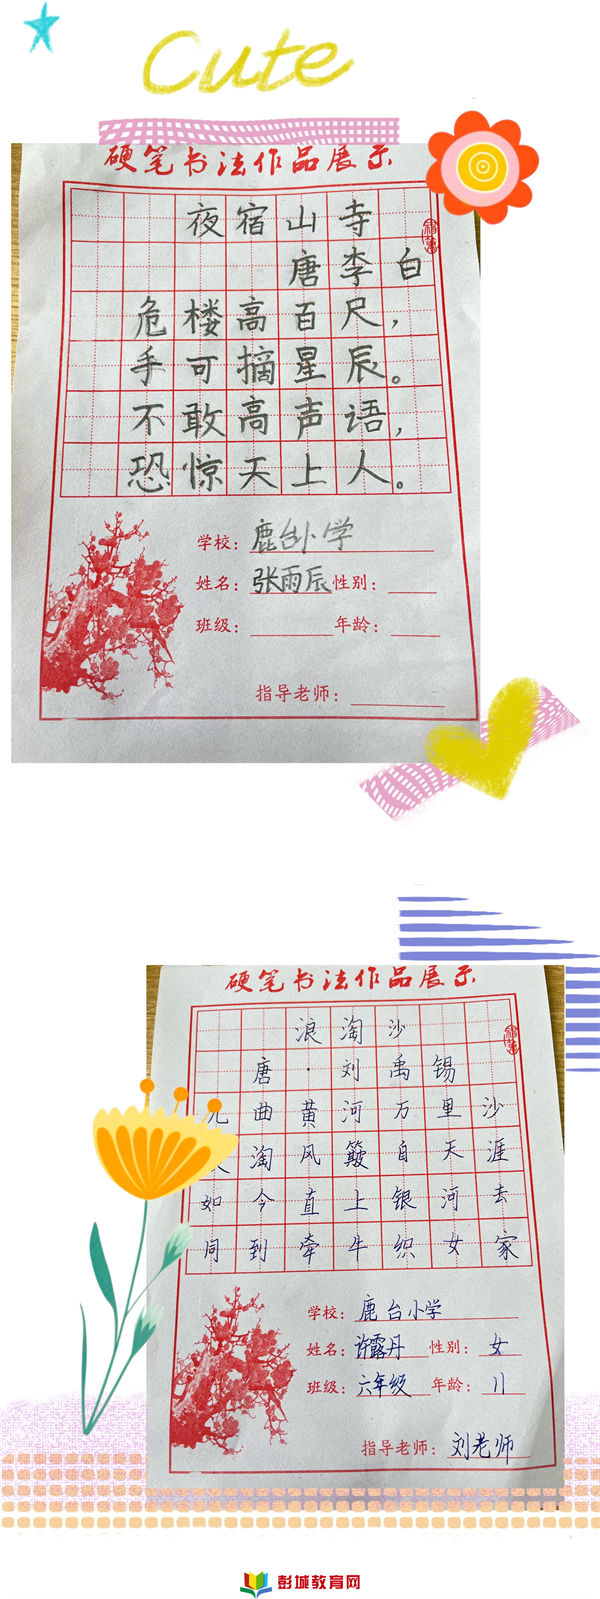 Cute
硬笔书法作品展示
夜宿山寺
唐李白
危楼高百尺，
手可摘星辰。
不敢高声语，
恐惊天上人。
学校：鹿台小学
姓名：张雨辰 性别：
班级： 年龄：
指导老师：
硬笔书法作品展示
浪淘沙
唐·刘禹锡
九曲黄河万里沙
淘风簸自天涯
如今直上银河去
同到牵牛织女家
学校：鹿台小学
姓名：许露丹 性别：女
班级：六年级 年龄：11
指导老师：刘老师
彭城教育网